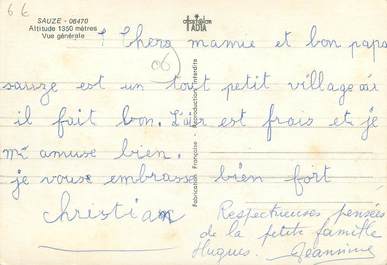 66
SAUZE - 06470
Altitude 1350 mètres
Vue générale
ADIA
Fabrication Française - Reproduction Interdite
06
Chers mamie et bon papa
sauze est un tout petit village où
il fait bon. L'air est frais et je
m'amuse bien.
je vous embrasse bien fort
christian
Respectueuses pensées
de la petite famille
Hugues. Jeannine